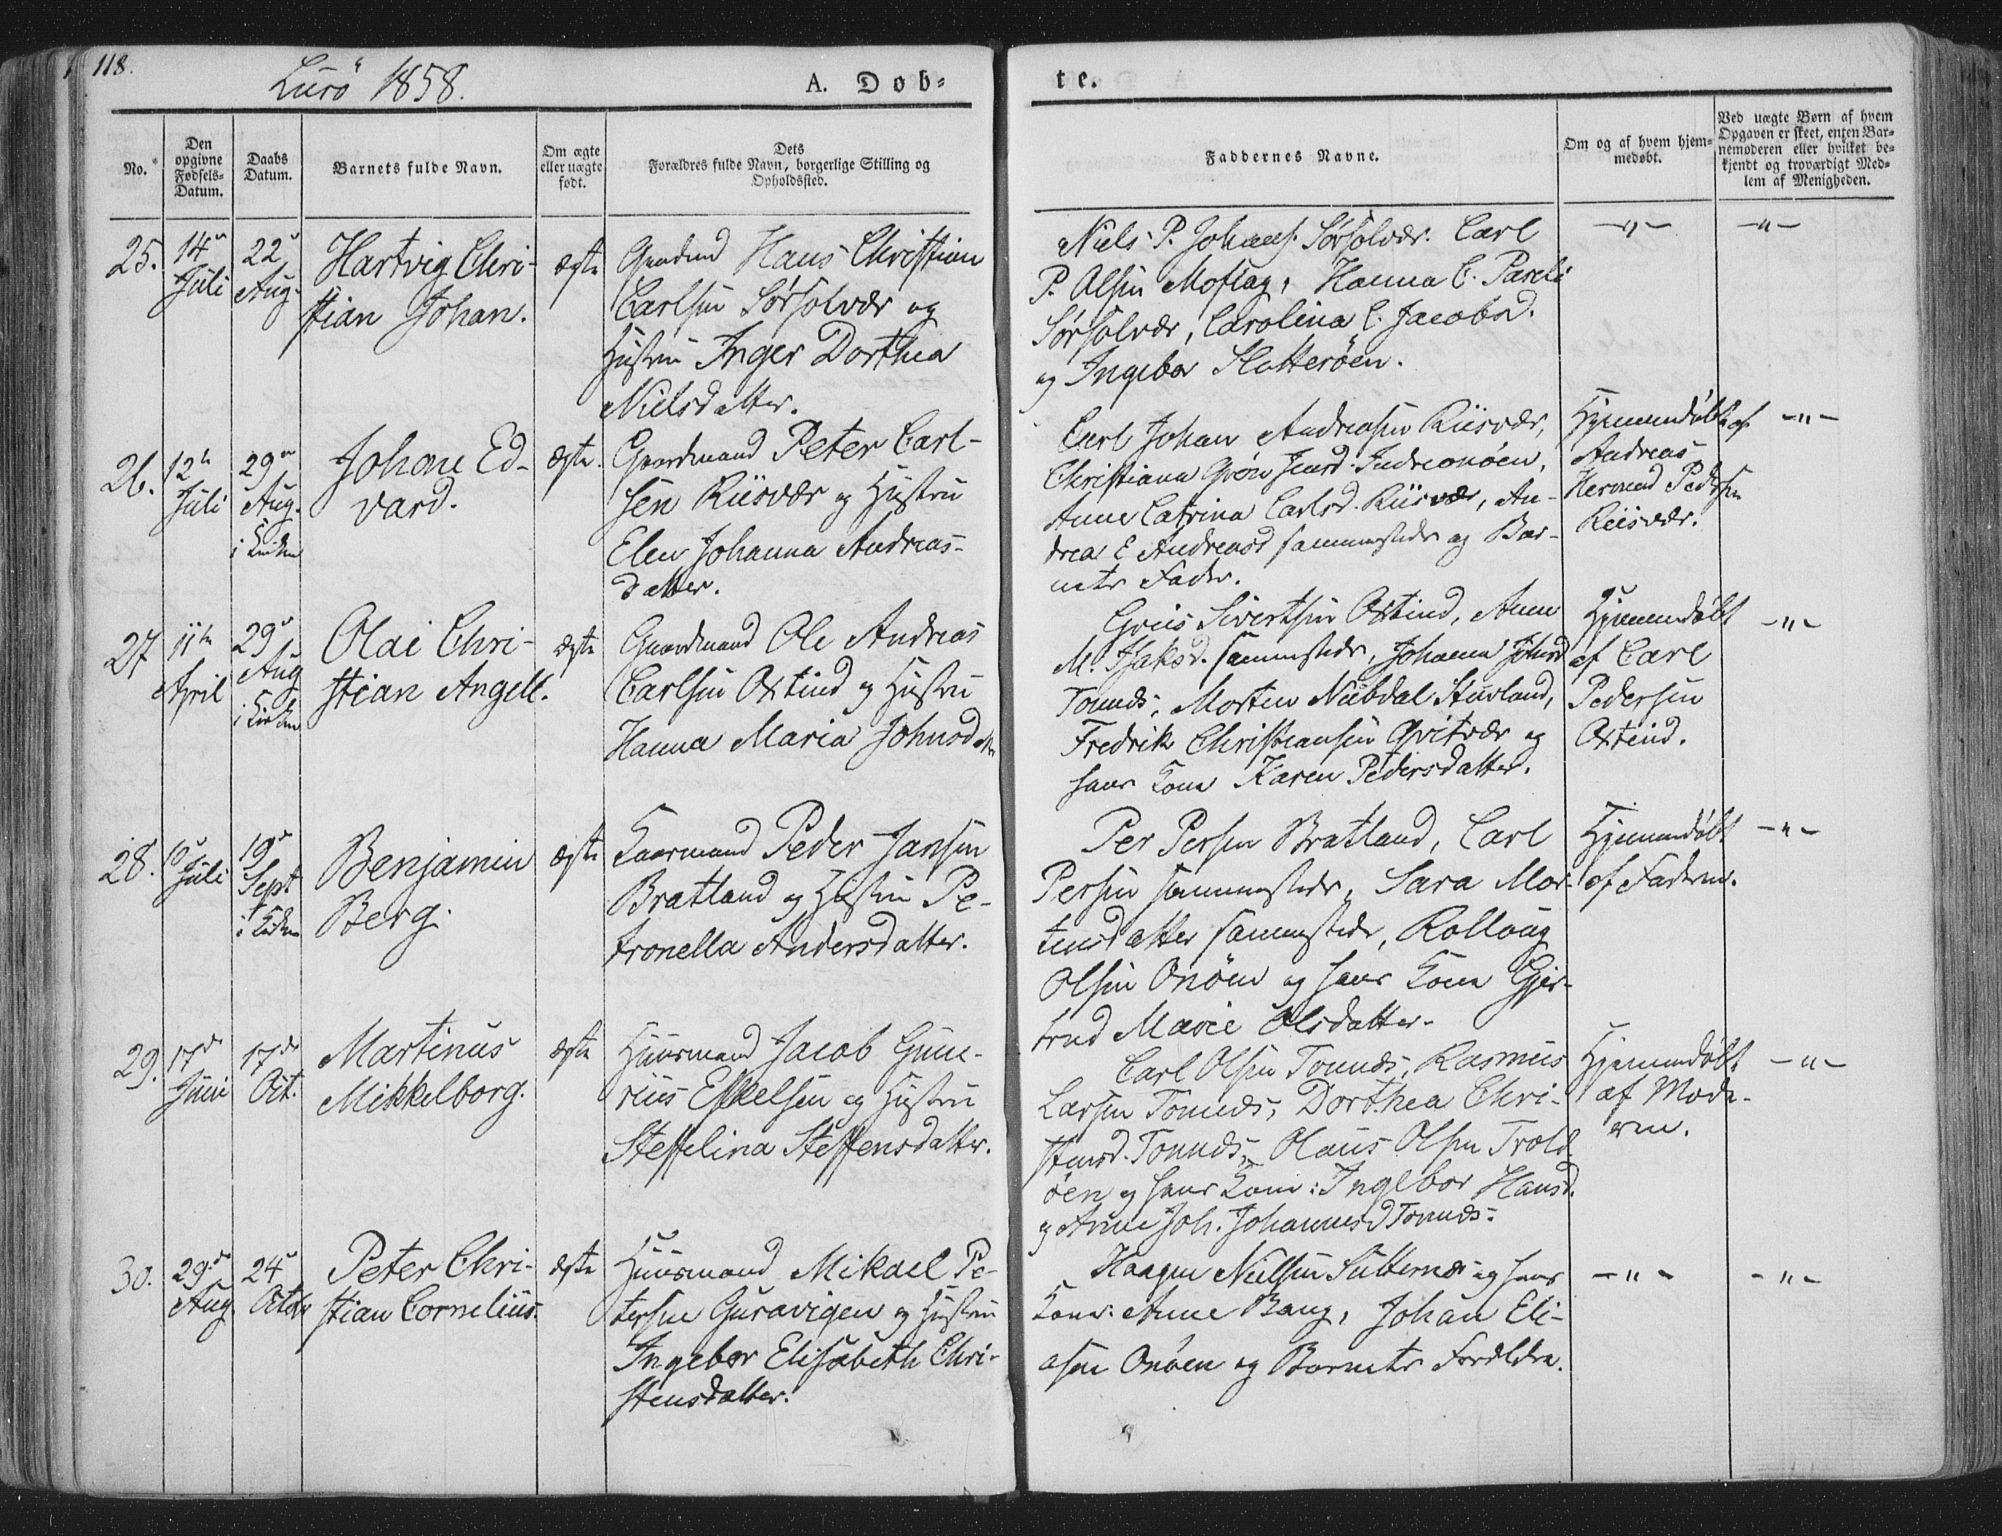 118.
Lurö 1858.
A. Døb-
te.
No.
Den opgivne Fødsels-Datum.
Daabs Datum.
Barnets fulde Navn.
Om ægte eller uægte født.
Dets Forældres fulde Navn, borgerlige Stilling og Opholdssted.
Faddernes Navne.
Om og af hvem hjemmedøbt.
Ved uægte Børn af hvem Opgaven er skeet, enten Barnemoderen eller hvilket bekjendt og troværdigt Medlem af Menigheden.
25.
14
Juli
22
Aug.
Hartvig Chri-
stian Johan.
ægte
Hans Christian
Carlsen Sørsolvær og
Hustru Inger Dorthea
Nielsdatter.
Niels P. Johans. Sørsolvær. Carl
P. Olsen Moflag, Hanna C. Pareli
Sørsolvær, Carolina C. Jacobsd.
og Ingebor Slotterøen.
-"-
-"-
26.
12te
Juli
29
Aug.
i Kirken
Johan Ed-
vard.
ægte.
Gaardmand Peter Carl-
sen Riisvær og Hustru
Elen Johanna Andreas-
datter.
Carl Johan Andreasen Riisvær,
Christiana Grøn Jensd. Indreonøen,
Anne Catrina Carlsd. Riisvær, An-
drea E Andreasd sammesteds og Bar-
nets Fader.
Hjemmedøbt af
Andreas
Hermand Pedersen
Riisvær.
-"-
27
11te
April
29
Aug
i Kirken
Olai Chri-
stian Angell.
ægte
Gaardmand Ole Andreas
Carlsen Oxtind og Hustru
Hanna Maria Johnsdatter
Greis Sivertsen Oxtind, Anne
M. Isaksd. sammesteds, Johanna Johnsd
Tonnes, Morten Niibdal Stuvland,
Fredrik Christiansen Qvitvær og
hans Kone Karen Pedersdatter.
Hjemmedøbt
af Carl
Pedersen
Oxtind.
-"-
28.
10
Juli
19
Sept
i Kirken
Benjamin
Berg.
ægte
Kaarmand Peder Jansen
Bratland og Hustru Pe-
tronella Andersdatter.
Per Persen Bratland, Carl
Persen sammesteds, Sara Mor-
tensdatter sammesteds, Rolloug
Olsen Onøen og hans Kone Gjer-
trud Marie Olsdatter.
Hjemmedøbt
af Faderen.
-"-
29.
17de
Juni
17de
Oct.
Martinus
Mikkelborg.
ægte
Huusmand Jacob Gune-
rius Eskelsen og Hustru
Steffelina Steffensdatter.
Carl Olsen Tonnes, Rasmus
Larsen Tonnes, Dorthea Chri-
stensd. Tonnes, Olaus Olsen Trold-
øen og hans Kone: Ingebor Hansd.
og Anne Joh. Johannesd Tonnes.
Hjemmedøbt
af Mode-
ren.
-"-
30.
29de
Aug
24
Octob
Peter Chri-
stian Cornelius.
ægte
Huusmand Mikael Pe-
tersen Guravigen og Hustru
Ingebor Elisabeth Chri-
stensdatter.
Haagen Nielsen Sutternes og hans
Kone: Anne Bang, Johan Eli-
asen Onøen og Barnets Forældre.
-"-
-"-